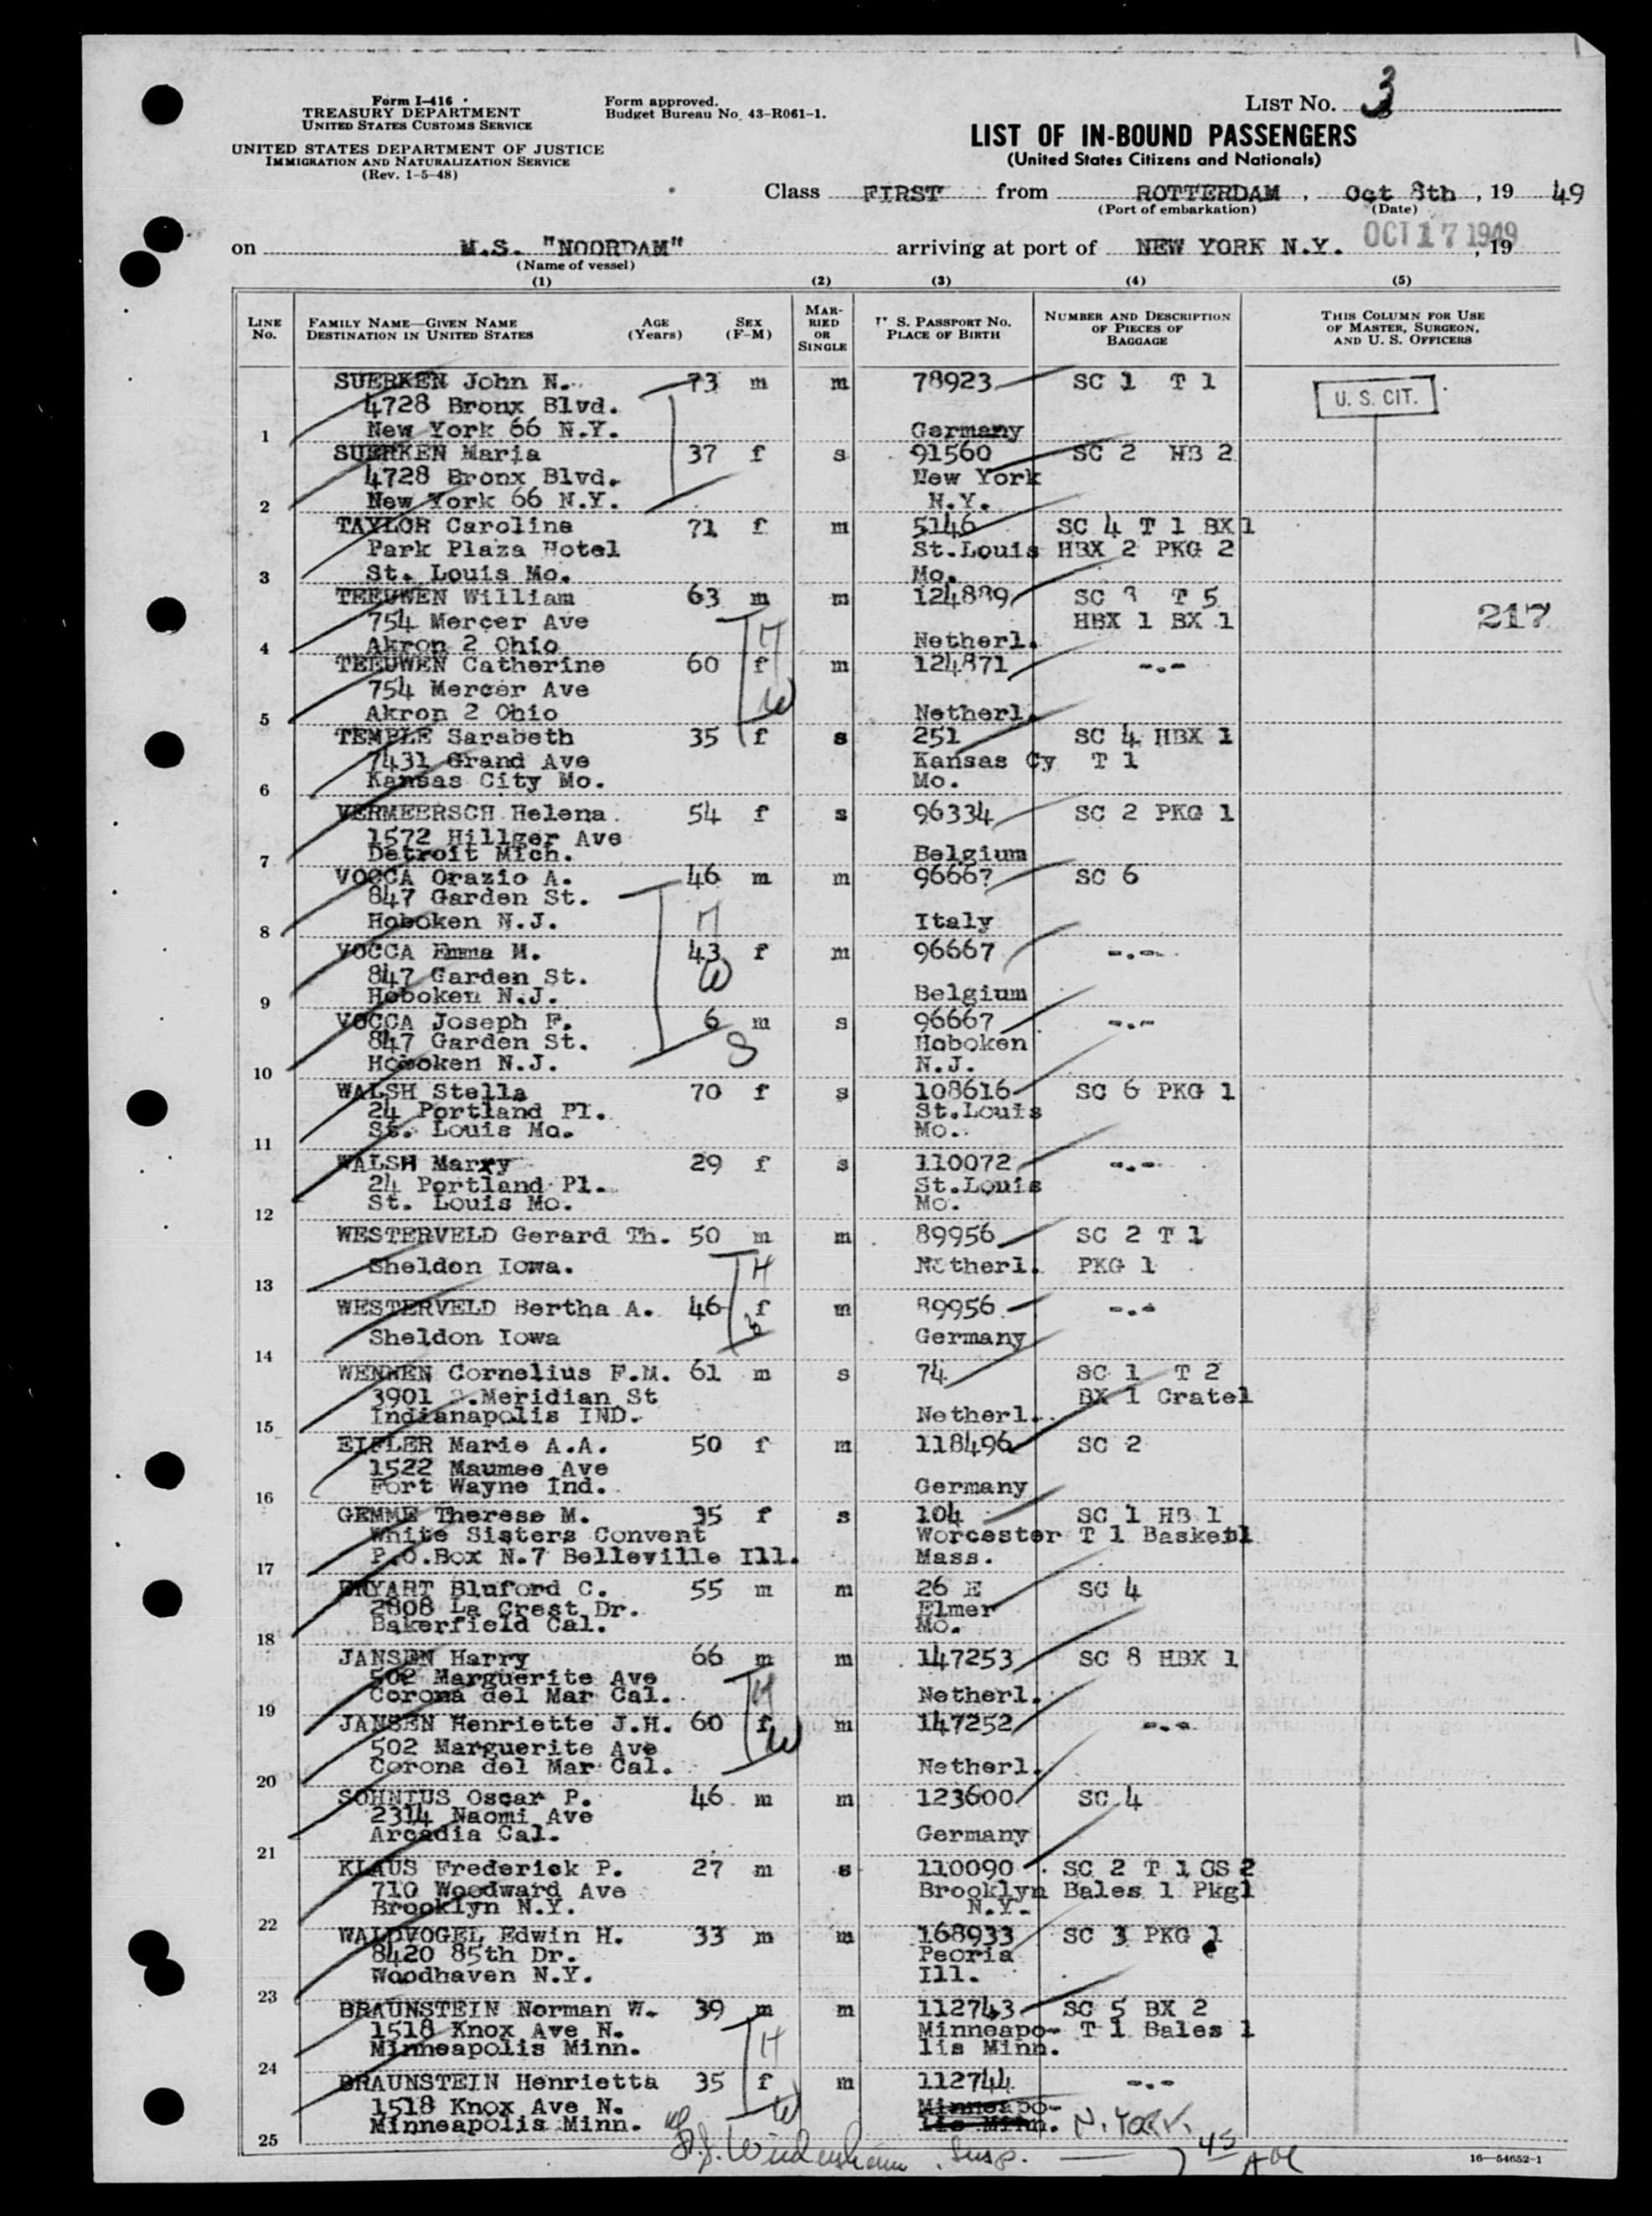 LIST NO. 3
Form I-416
TREASURY DEPARTMENT
UNITED STATES CUSTOMS SERVICE
UNITED STATES DEPARTMENT OF JUSTICE
IMMIGRATION AND NATURALIZATION SERVICE
(Rev. 1-5-48)
Form approved.
Budget Bureau No. 43-R061-1.
LIST OF IN-BOUND PASSENGERS
(United States Citizens and Nationals)
Class FIRST from ROTTERDAM, Oct 8th, 19 49
(Port of embarkation) (Date)
on M.S. "NOORDAM" arriving at port of NEW YORK N.Y. OCT 17 1949, 19
(Name of vessel)
(1) (2) (3) (4) (5)
LINE No. FAMILY NAME—GIVEN NAME DESTINATION IN UNITED STATES AGE (Years) SEX (F-M) MARRIED OR SINGLE U. S. PASSPORT NO. PLACE OF BIRTH NUMBER AND DESCRIPTION OF PIECES OF BAGGAGE THIS COLUMN FOR USE OF MASTER, SURGEON, AND U. S. OFFICERS
SUERKEN John N. 73 m m 78923 SC 1 T 1 U. S. CIT.
4728 Bronx Blvd.
1 New York 66 N.Y. Germany
SUERKEN Maria 37 f s 91560 SC 2 HB 2
4728 Bronx Blvd. New York
2 New York 66 N.Y. N.Y.
TAYLOR Caroline 71 f m 5146 SC 4 T 1 BX 1
Park Plaza Hotel St.Louis HBX 2 PKG 2
3 St. Louis Mo. Mo.
TEEUWEN William 63 m m 124889 SC 8 T 5
754 Mercer Ave HBX 1 BX 1 217
4 Akron 2 Ohio Netherl.
TEEUWEN Catherine 60 f m 124871 -.-
754 Mercer Ave
5 Akron 2 Ohio Netherl.
TEMPLE Sarabeth 35 f s 251 SC 4 HBX 1
7431 Grand Ave Kansas Cy T 1
6 Kansas City Mo. Mo.
VERMEERSCH Helena 54 f s 96334 SC 2 PKG 1
1572 Hillger Ave
7 Detroit Mich. Belgium
VOCCA Orazio A. 46 m m 96667 SC 6
847 Garden St.
8 Hoboken N.J. Italy
VOCCA Emma M. 43 f m 96667 -.-.
847 Garden St.
9 Hoboken N.J. Belgium
VOCCA Joseph F. 6 m s 96667 -.-
847 Garden St. Hoboken
10 Hoboken N.J. N.J.
WALSH Stella 70 f s 108616 SC 6 PKG 1
24 Portland Pl. St.Louis
11 St. Louis Mo. Mo.
WALSH Marry 29 f s 110072 -.-
24 Portland Pl. St.Louis
12 St. Louis Mo. Mo.
WESTERVELD Gerard Th. 50 m m 89956 SC 2 T 1
13 Sheldon Iowa. Netherl. PKG 1
WESTERVELD Bertha A. 46 f m 89956 -.-
14 Sheldon Iowa Germany
WENNEN Cornelius F.M. 61 m s 74 SC 1 T 2
3901 Meridian St BX 1 Crate1
15 Indianapolis IND. Netherl.
EIFLER Marie A.A. 50 f m 118496 SC 2
1522 Maumee Ave
16 Fort Wayne Ind. Germany
GEMME Therese M. 35 f s 104 SC 1 HB 1
White Sisters Convent Worcester T 1 Basket1
17 P.O.Box N.7 Belleville Ill. Mass.
BRYART Bluford C. 55 m m 26 E SC 4
2808 La Crest Dr. Elmer
18 Bakerfield Cal. Mo.
JANSEN Harry 66 m m 147253 SC 8 HBX 1
502 Marguerite Ave
19 Corona del Mar Cal. Netherl.
JANSEN Henriette J.H. 60 f m 147252 -.-
502 Marguerite Ave
20 Corona del Mar Cal. Netherl.
SOHNIUS Oscar P. 46 m m 123600 SC 4
2314 Naomi Ave
21 Arcadia Cal. Germany
KLAUS Frederick P. 27 m s 110090 SC 2 T 1 GS 2
710 Woodward Ave Brooklyn Bales 1 Pkg1
22 Brooklyn N.Y. N.Y.
WALDVOGEL Edwin H. 33 m m 168933 SC 3 PKG 1
8420 85th Dr. Peoria
23 Woodhaven N.Y. Ill.
BRAUNSTEIN Norman W. 39 m m 112743 SC 5 BX 2
1518 Knox Ave N. Minneapo- T 1 Bales 1
24 Minneapolis Minn. lis Minn.
BRAUNSTEIN Henrietta 35 f m 112744 -.-
1518 Knox Ave N. Minneapo-
25 Minneapolis Minn. lis Minn. N. YORK
Insp.
16—54652-1